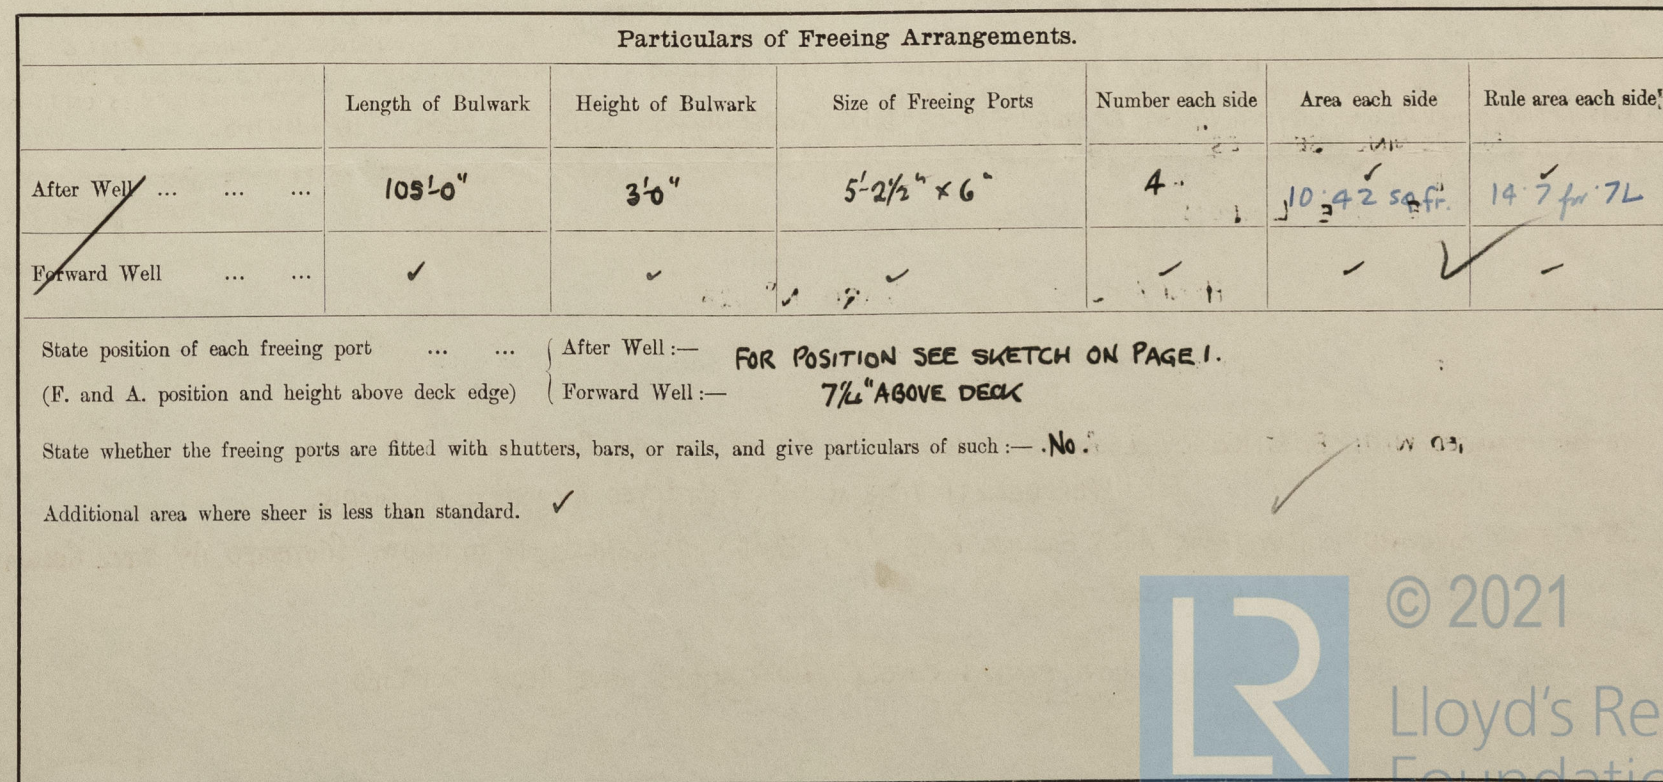 Particulars of Freeing Arrangements.
Length of Bulwark Height of Bulwark Size of Freeing Ports Number each side Area each side Rule area each side
After Well ... ... ... 105'-0" 3'-0" 5'-2½" × 6" 4 10.42 sq ft. 14.7 for .7L
Forward Well ... ... ✓ ✓ ✓ ✓ ✓ ✓
State position of each freeing port ... ... After Well :— FOR POSITION SEE SKETCH ON PAGE 1.
(F. and A. position and height above deck edge) Forward Well :— ABOVE DECK
State whether the freeing ports are fitted with shutters, bars, or rails, and give particulars of such :— No.
Additional area where sheer is less than standard. ✓
© 2021
LR
Lloyd's Re
Foundatio